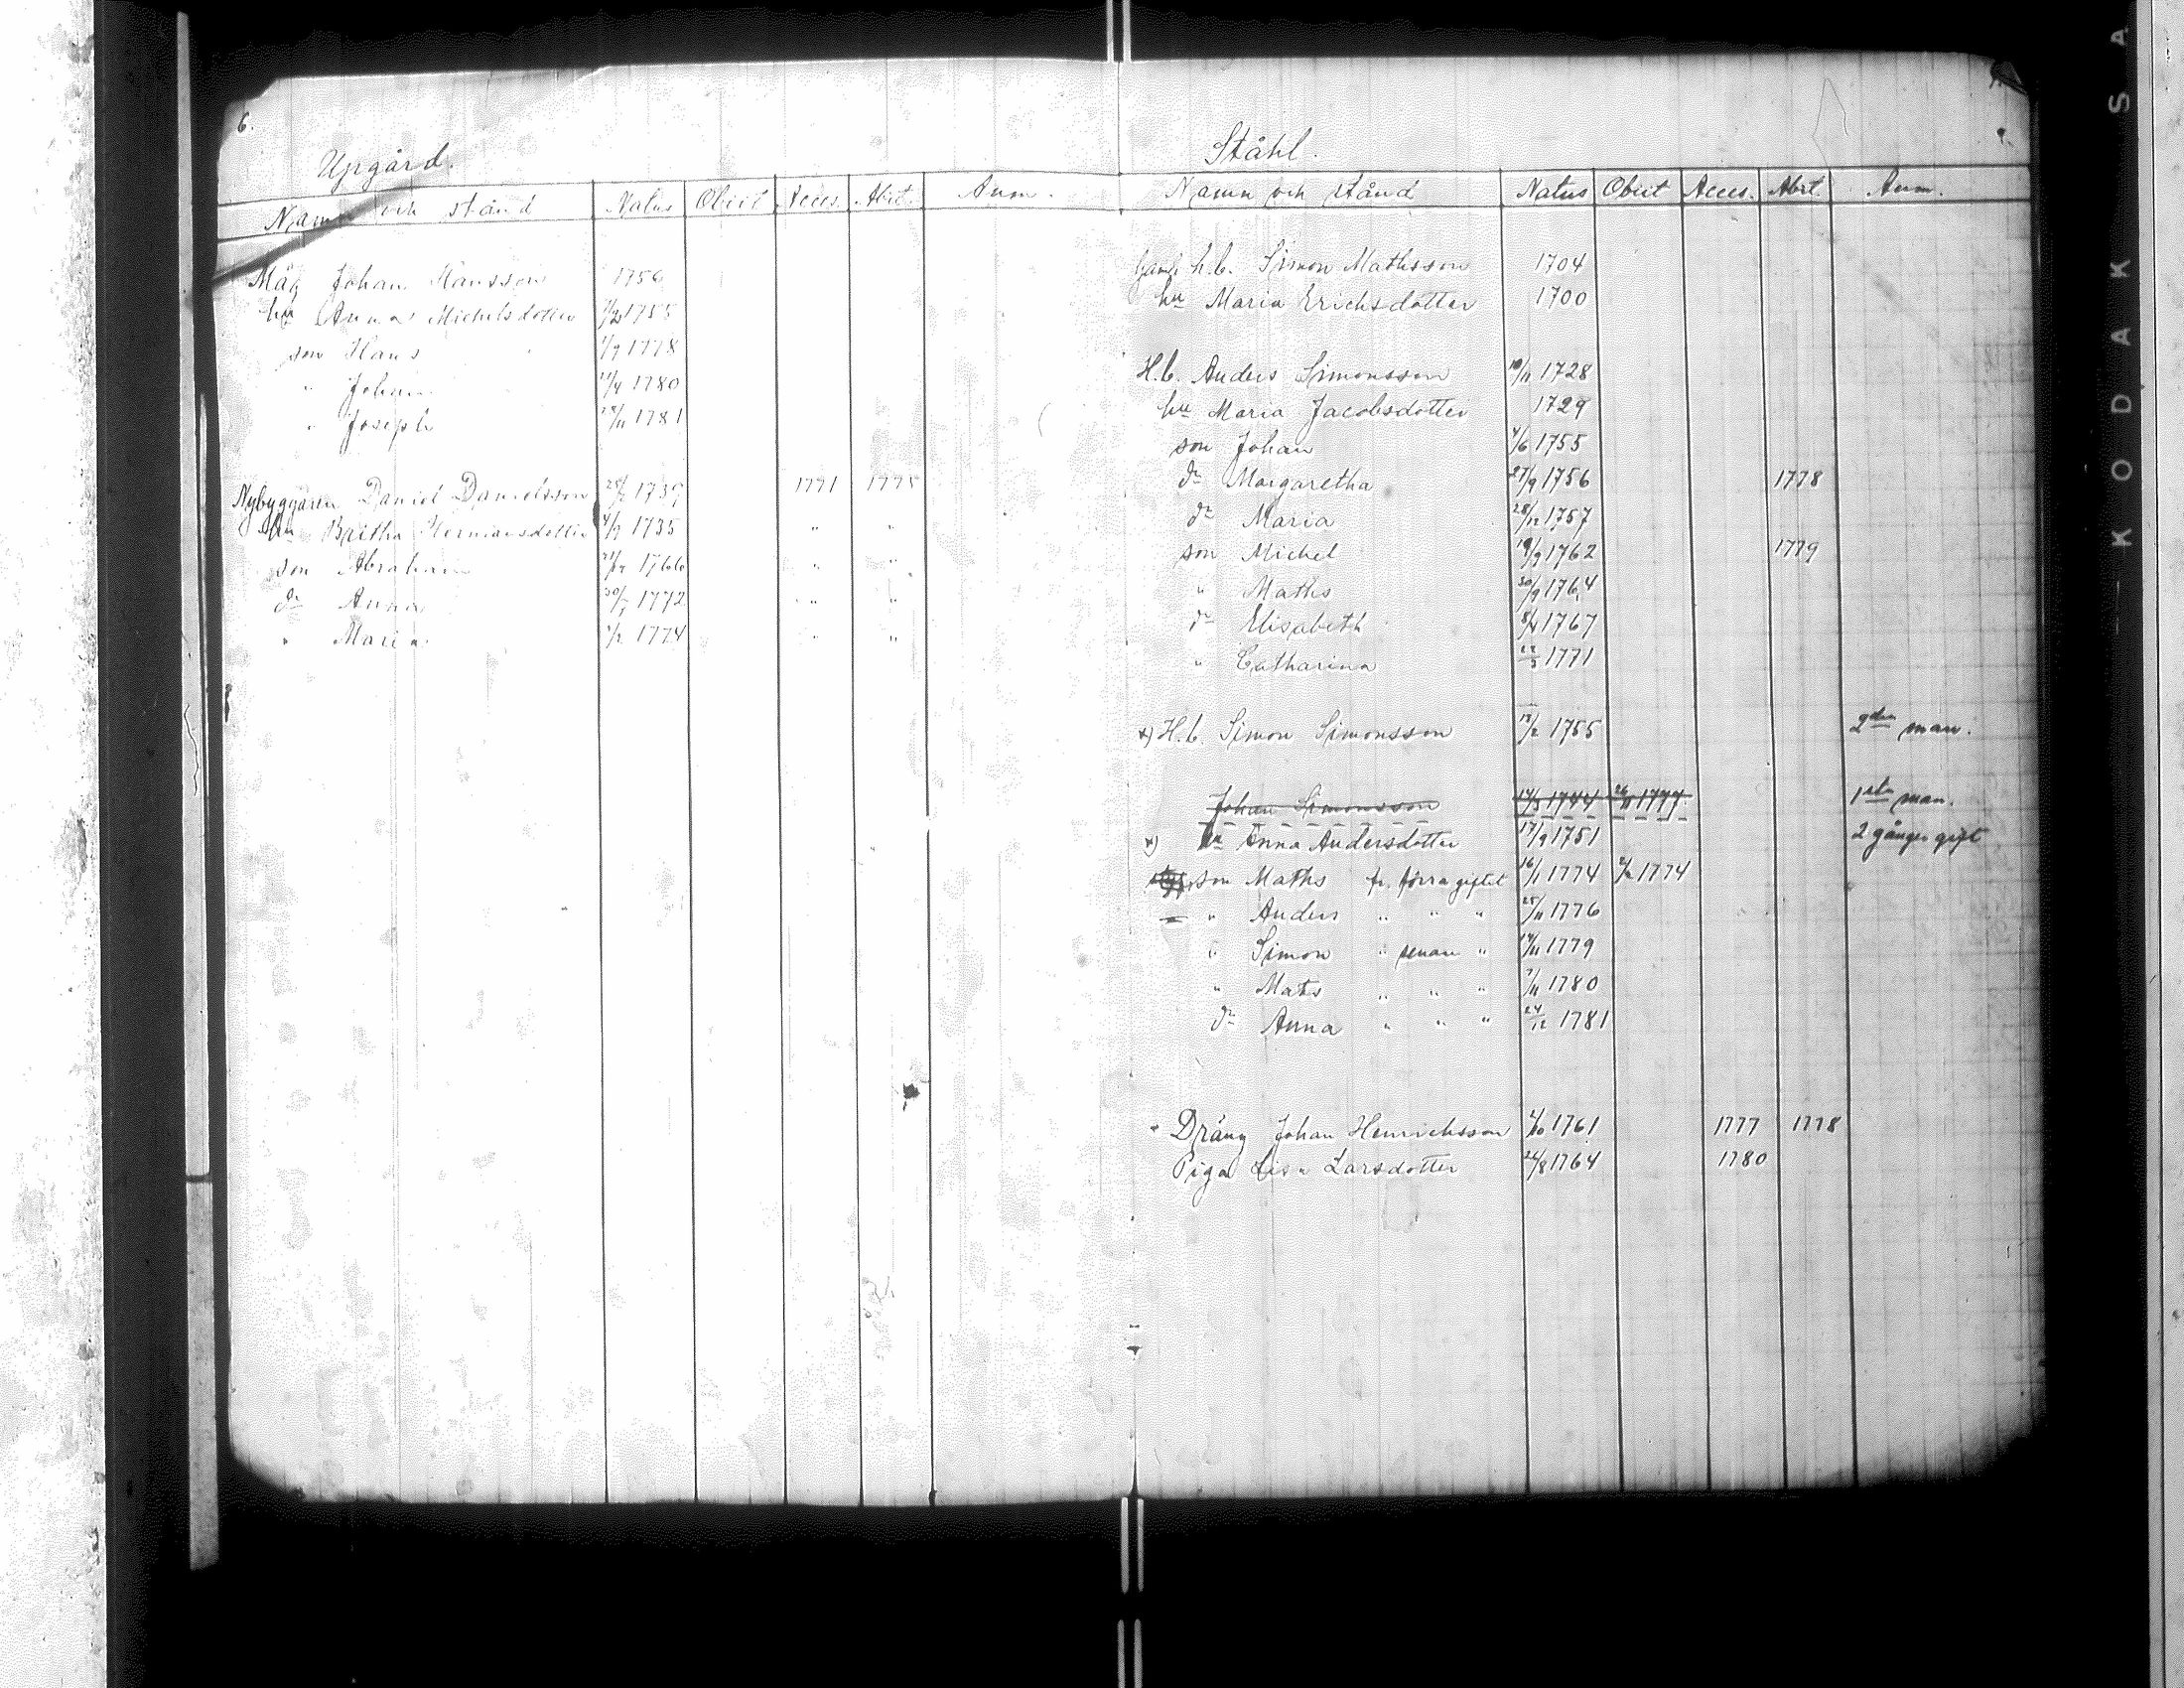 6.
Upgård.
Namn och stånd Natus Obiit Acces. Abiit. Anm.
Måg Johan Hansson 1756
hu Anna Michelsdotter 1755
son Hans 1/9 1778
" Johan 1780
" Joseph 1781
Nybyggaren Daniel Danielsson 1771 1775
hu Bretha Hermansdotter 4/9 1735 " "
son Abraham 1766 " "
dr Anna 1772 " "
" Maria 1774 " "
Ståhl.
Namn och stånd Natus Obiit Acces. Abiit. Anm.
Gaml. h.b. Simon Mathsson 1704
hu Maria Erichsdotter 1700
H.b. Anders Simonsson 10/11 1728
hu Maria Jacobsdotter 1729
son Johan 4/6 1755
dr Margaretha 27/9 1756 1778
dr Maria 28/12 1757
son Michel 19/9 1762 1779
" Maths 30/9 1764
dr Elisabeth 1767
" Catharina 22/3 1771
x) H.b. Simon Simonsson 18/2 1755 2dra man.
Johan Simonsson 14/3 1744 26/11 1777. 1sta man.
x) hu Anna Andersdotter 17/9 1751 2 gånger gift
son Maths fr. förra giftet 16/1 1774 2/2 1774
" Anders " " " 25/11 1776
" Simon " senare " 14/11 1779
" Mats " " " 7/11 1780
dr Anna " " " 24/12 1781
Dräng Johan Henrichsson 2/10 1761 1777 1778
Piga Lisa Larsdotter 24/8 1764 1780
KODAK SA